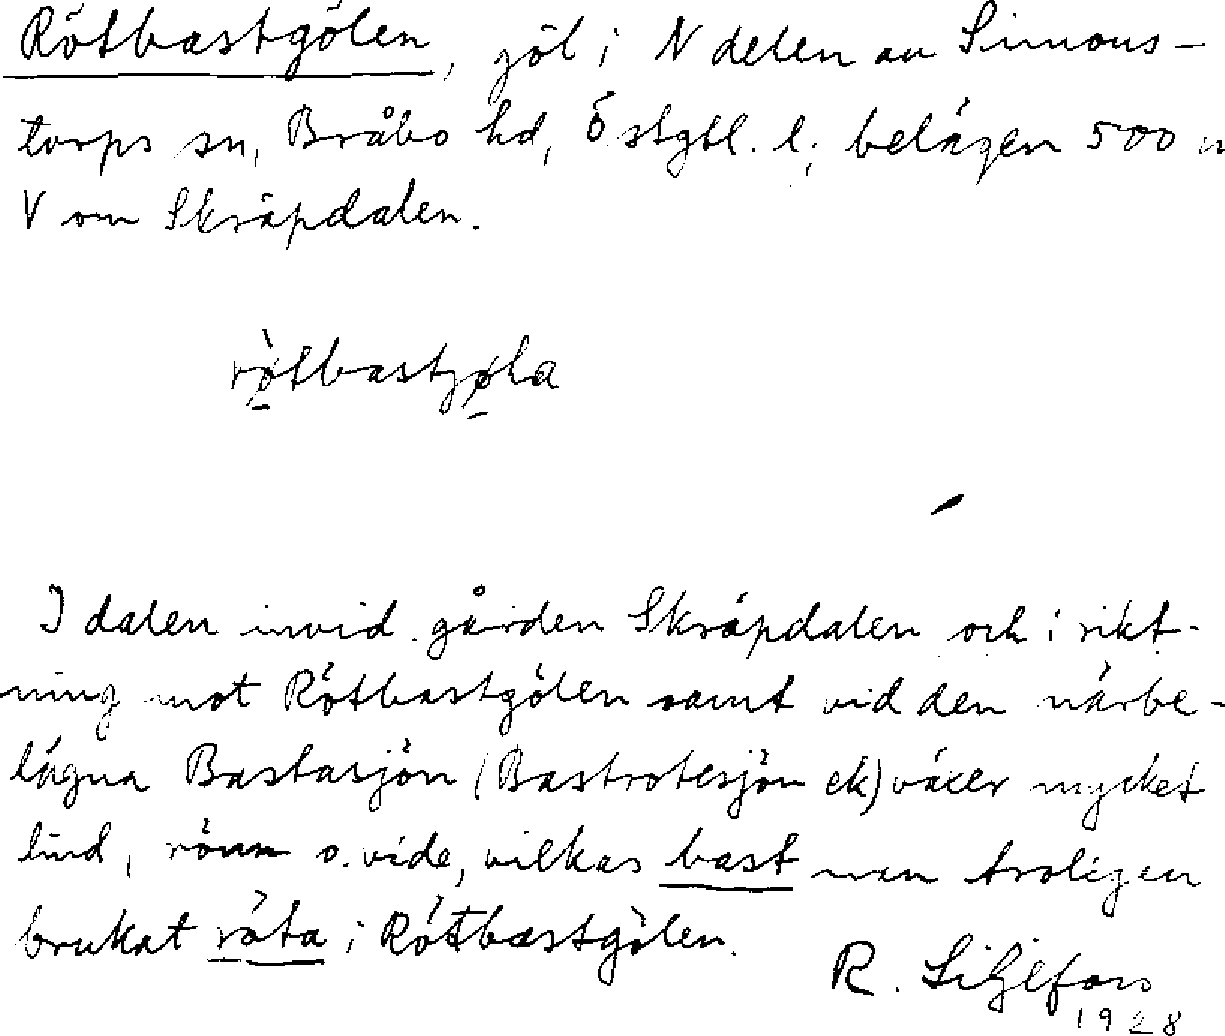 Rötbastgölen, göl i N delen av Simons-
torps sn, Bråbo hd, Östgtl. l; belägen 500 m
V om Skräpdalen.
rø̀tbastjøla
I dalen invid gården Skräpdalen och i rikt-
ning mot Rötbastgölen samt vid den närbe-
lägna Bastasjön (Bastrotesjön ek) växer mycket
lind, rönn o. vide, vilkas bast man troligen
brukat röta i Rötbastgölen.
R. Liljefors
1928